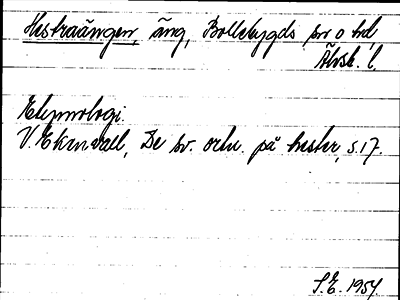 Hestraängen, äng, Bollebygds sn o hd,
Älvsb. l.
Etymologi.
V. Ekenvall, De sv. ortn. på hester, s. 17.
S.E. 1954